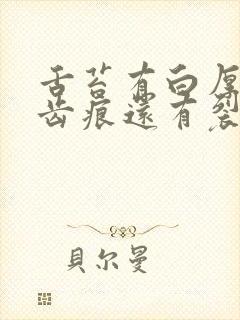 舌苔有白厚
齿痕還有裂
貝尔曼